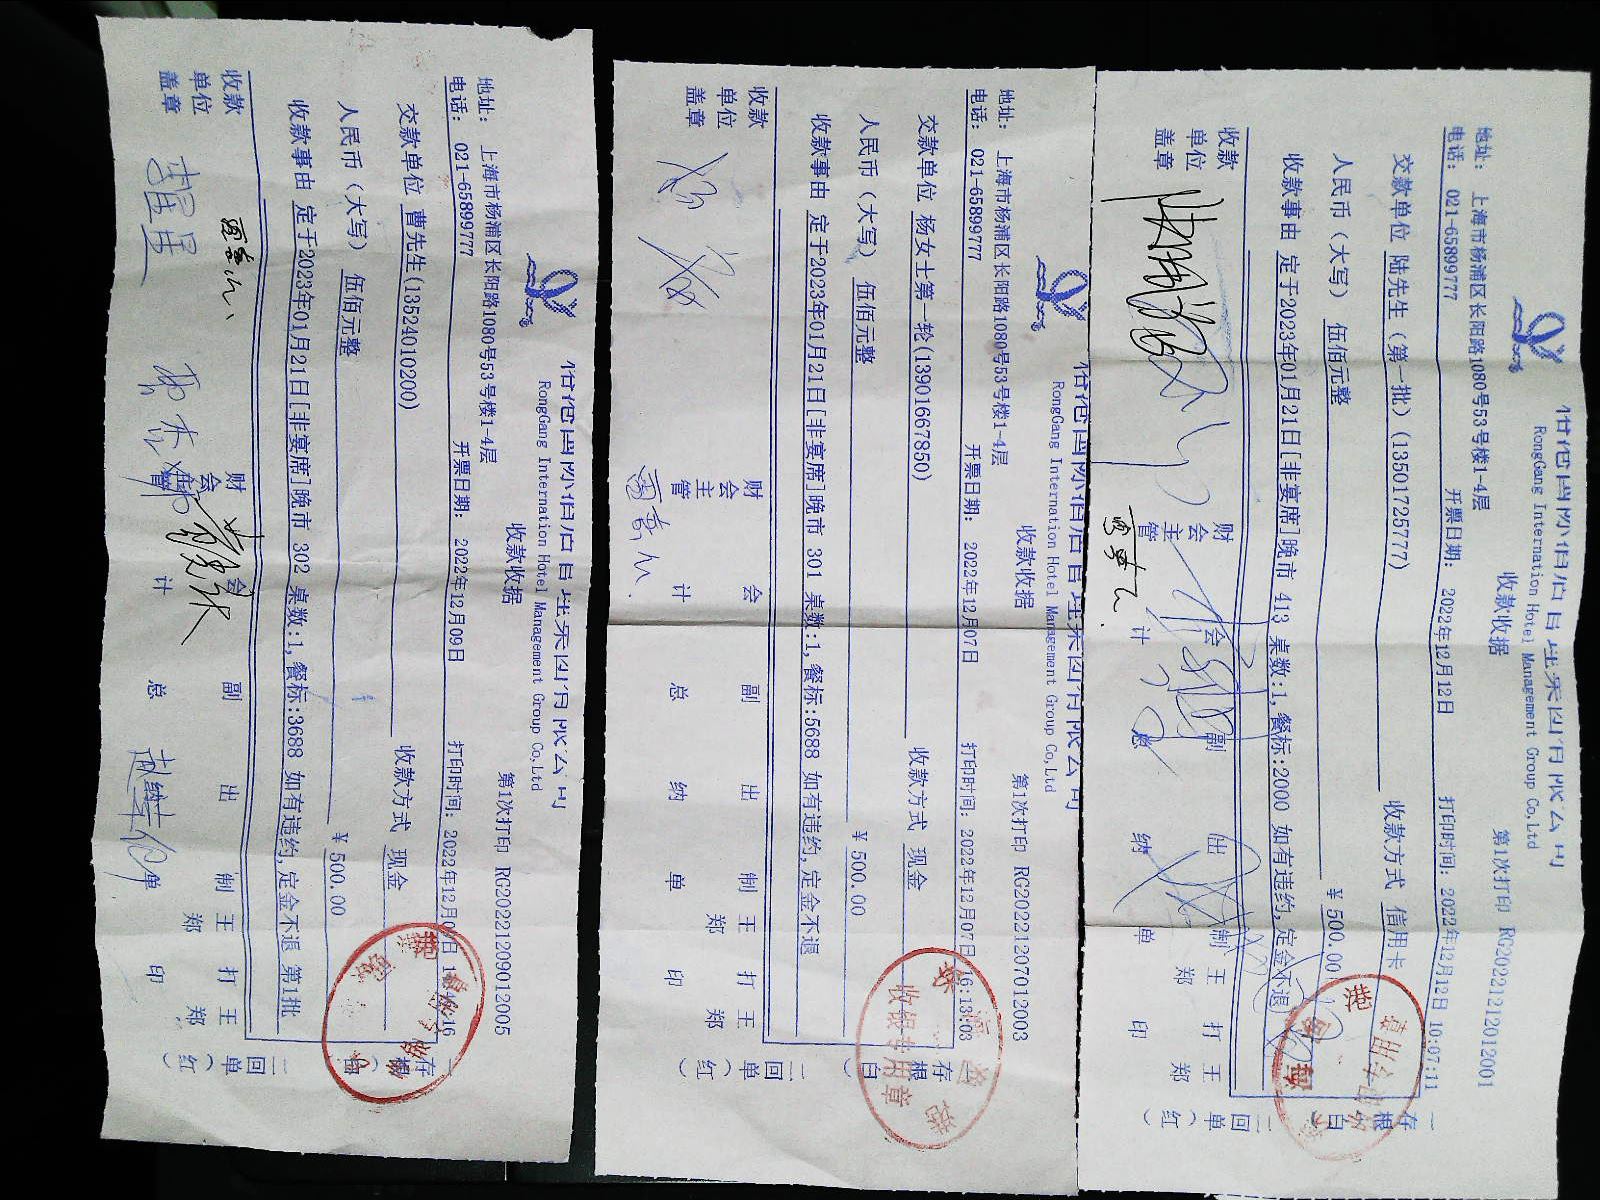 RongGang International Hotel Management Group Co,Ltd
收款收据
第1次打印 RG20221209012005
地址： 上海市杨浦区长阳路1080号53号楼1-4层
电话： 021-65899777
开票日期： 2022年12月09日
打印时间： 2022年12月
交款单位 曹先生(13524010200)
收款方式 现金
人民币（大写） 伍佰元整
￥ 500.00
收款事由 定于2023年01月21日[非宴席]晚市 302 桌数:1,餐标:3688 如有违约,定金不退 第1批
收款单位盖章
财会主管
会计
副总
出纳
制单 王郑
打印 王郑
一存根（白）
二回单（红）
RongGang International Hotel Management Group Co,Ltd
收款收据
第1次打印 RG20221207012003
地址： 上海市杨浦区长阳路1080号53号楼1-4层
电话： 021-65899777
开票日期： 2022年12月07日
打印时间： 2022年12月07日 16:13:03
交款单位 杨女士第一轮(13901667850)
收款方式 现金
人民币（大写） 伍佰元整
￥ 500.00
收款事由 定于2023年01月21日[非宴席]晚市 301 桌数:1,餐标:5688 如有违约,定金不退
收款单位盖章
财会主管
会计
副总
出纳
制单 王郑
打印 王郑
一存根（白）
二回单（红）
收银专用章
RongGang International Hotel Management Group Co,Ltd
收款收据
第1次打印 RG20221212012001
地址： 上海市杨浦区长阳路1080号53号楼1-4层
电话： 021-65899777
开票日期： 2022年12月12日
打印时间： 2022年12月12日 10:07:11
交款单位 陆先生（第一批）(13501725777)
收款方式 信用卡
人民币（大写） 伍佰元整
￥ 500.00
收款事由 定于2023年01月21日[非宴席]晚市 413 桌数:1,餐标:2000 如有违约,定金不退
收款单位盖章
财会主管
会计
副总
出纳
制单 王郑
打印 王郑
一存根（白）
二回单（红）